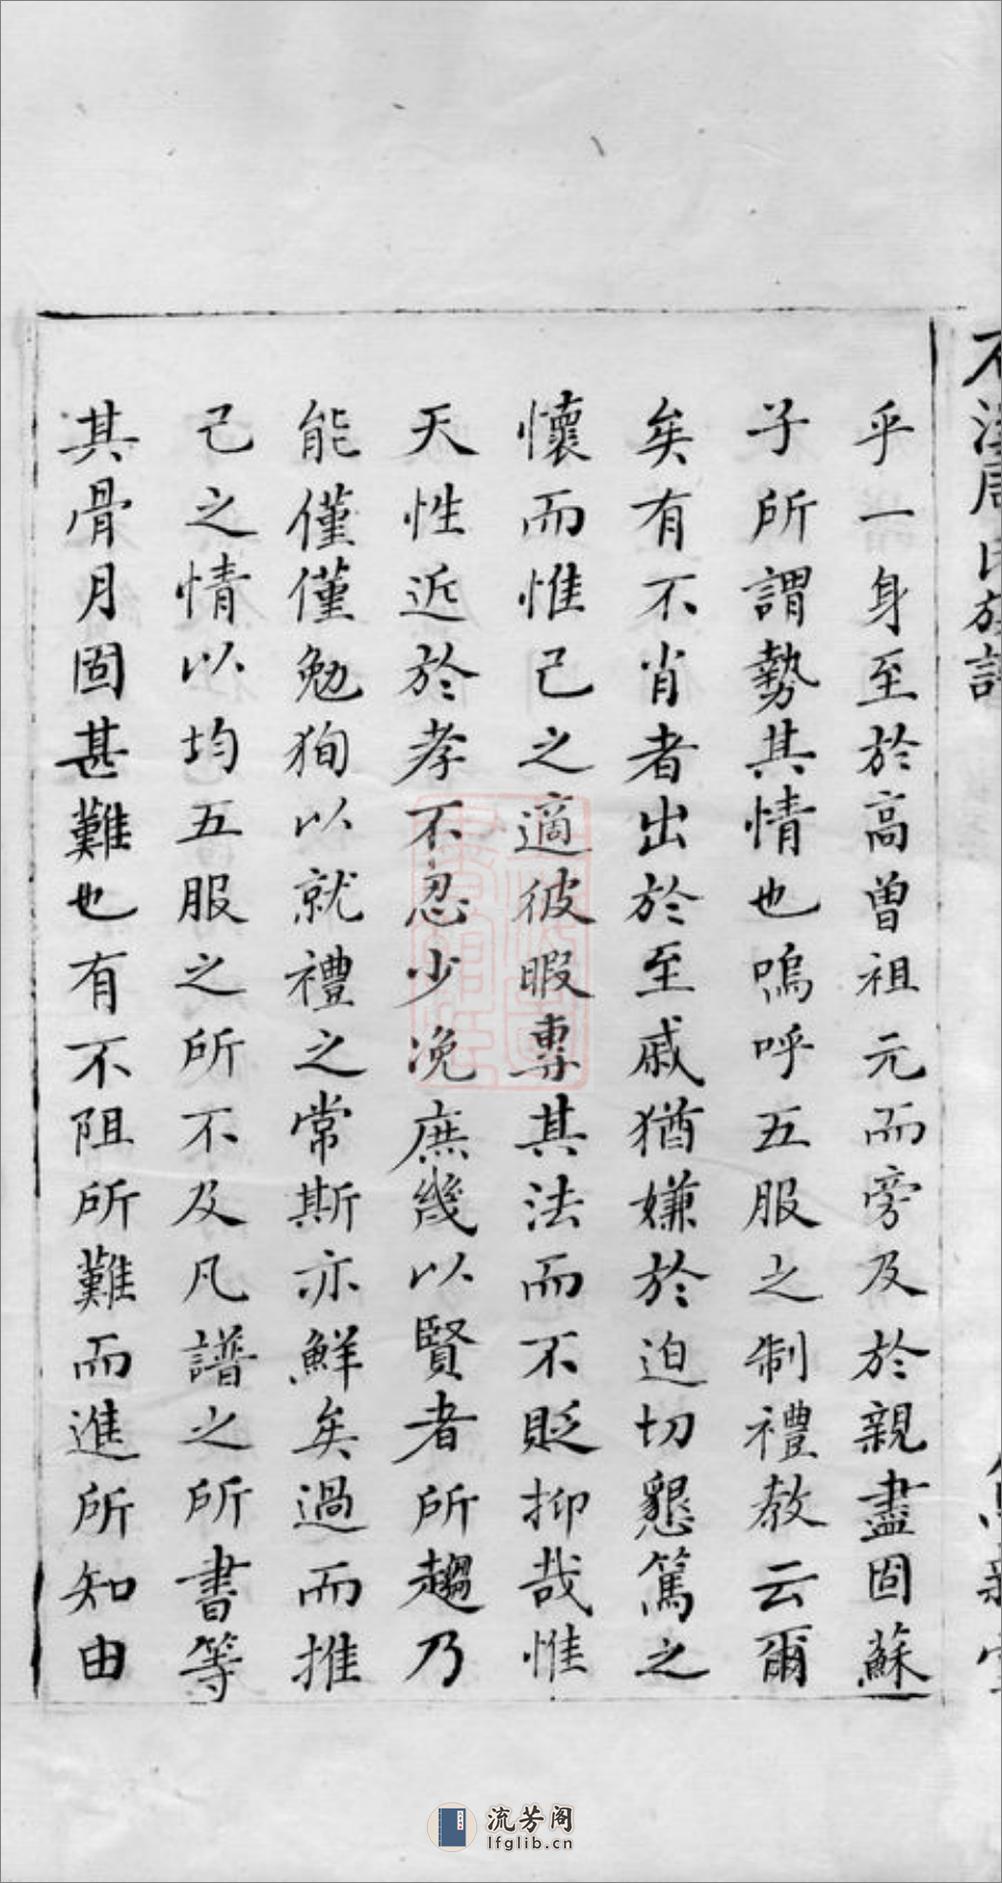 乎一身至於高曾祖元而旁及於親盡固蘇
子所謂勢其情也嗚呼五服之制禮教云爾
矣有不肖者出於至戚猶嫌於迫切懇篤之
懷而惟己之適彼暇專其法而不貶抑哉惟
天性近於孝不忍少浼庶幾以賢者所趨乃
能僅僅勉狥以就禮之常斯亦鮮矣過而推
己之情以均五服之所不及凡譜之所書等
其骨月固甚難也有不阻所難而進所知由
流芳阁
lfglib.cn